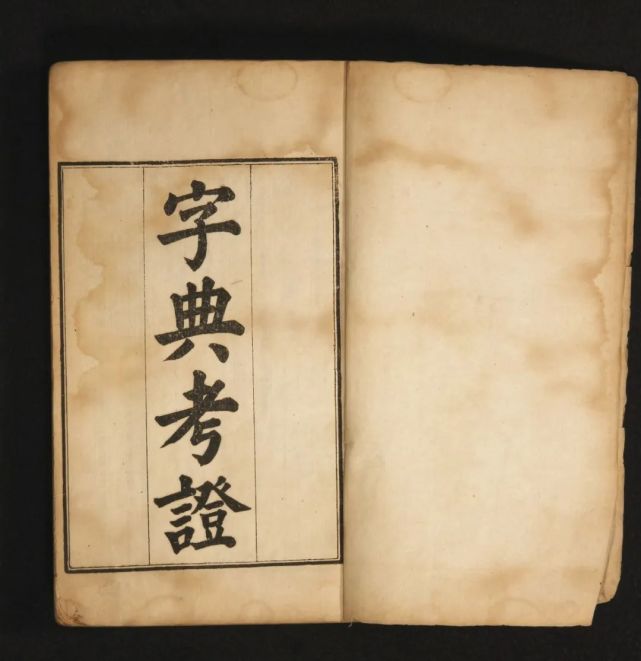 字典考證